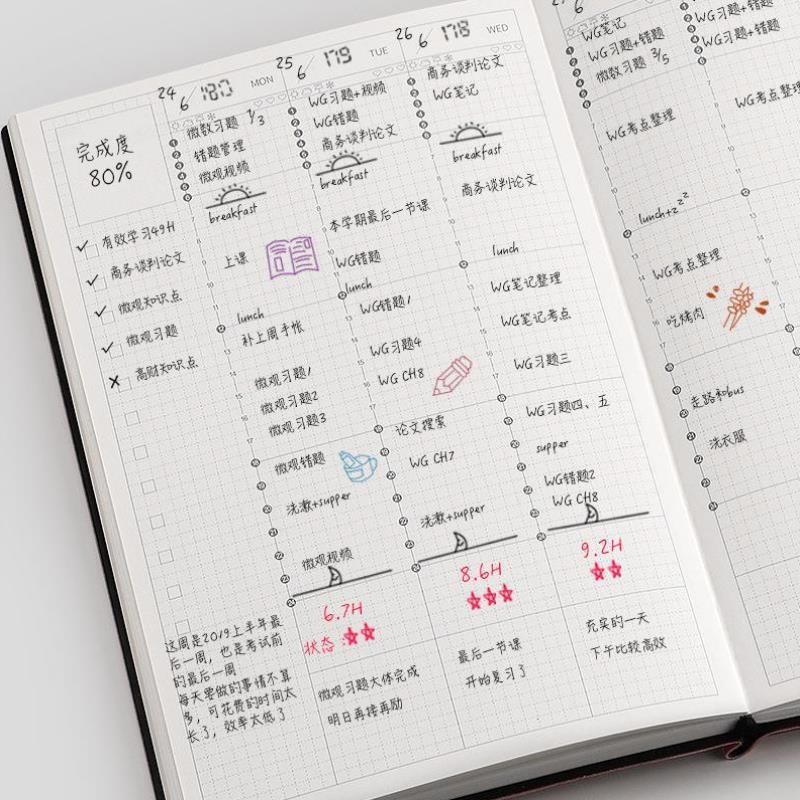 完成度
80%
有效学习49H
商务谈判论文
微观知识点
微观习题
高财知识点
这周是2019上半年最
后一周，也是考试前
的最后一周
每天要做的事情不算
多，可花费的时间太
长了，效率太低了
24/6 180 MON
微数习题 1/3
错题管理
微观视频
breakfast
上课
lunch
补上周手帐
微观习题1
微观习题2
微观习题3
微观错题
洗漱+supper
微观视频
6.7H
状态:
微观习题大体完成
明日再接再励
25/6 179 TUE
WG习题+视频
WG错题
商务谈判论文
breakfast
本学期最后一节课
WG错题
lunch
WG错题1
WG习题4
WG CH8
论文搜索
WG CH7
洗漱+supper
8.6H
最后一节课
开始复习了
26/6 178 WED
商务谈判论文
WG笔记
breakfast
商务谈判论文
lunch
WG笔记整理
WG笔记考点
WG习题三
WG习题四、五
supper
WG错题2
WG CH8
9.2H
充实的一天
下午比较高效
WG笔记
WG习题+错题
微数习题 3/5
WG考点整理
lunch+zzz
WG考点整理
吃烤肉
走路和bus
洗衣服
WG习题+错题
WG习题+错题
WG考点整理